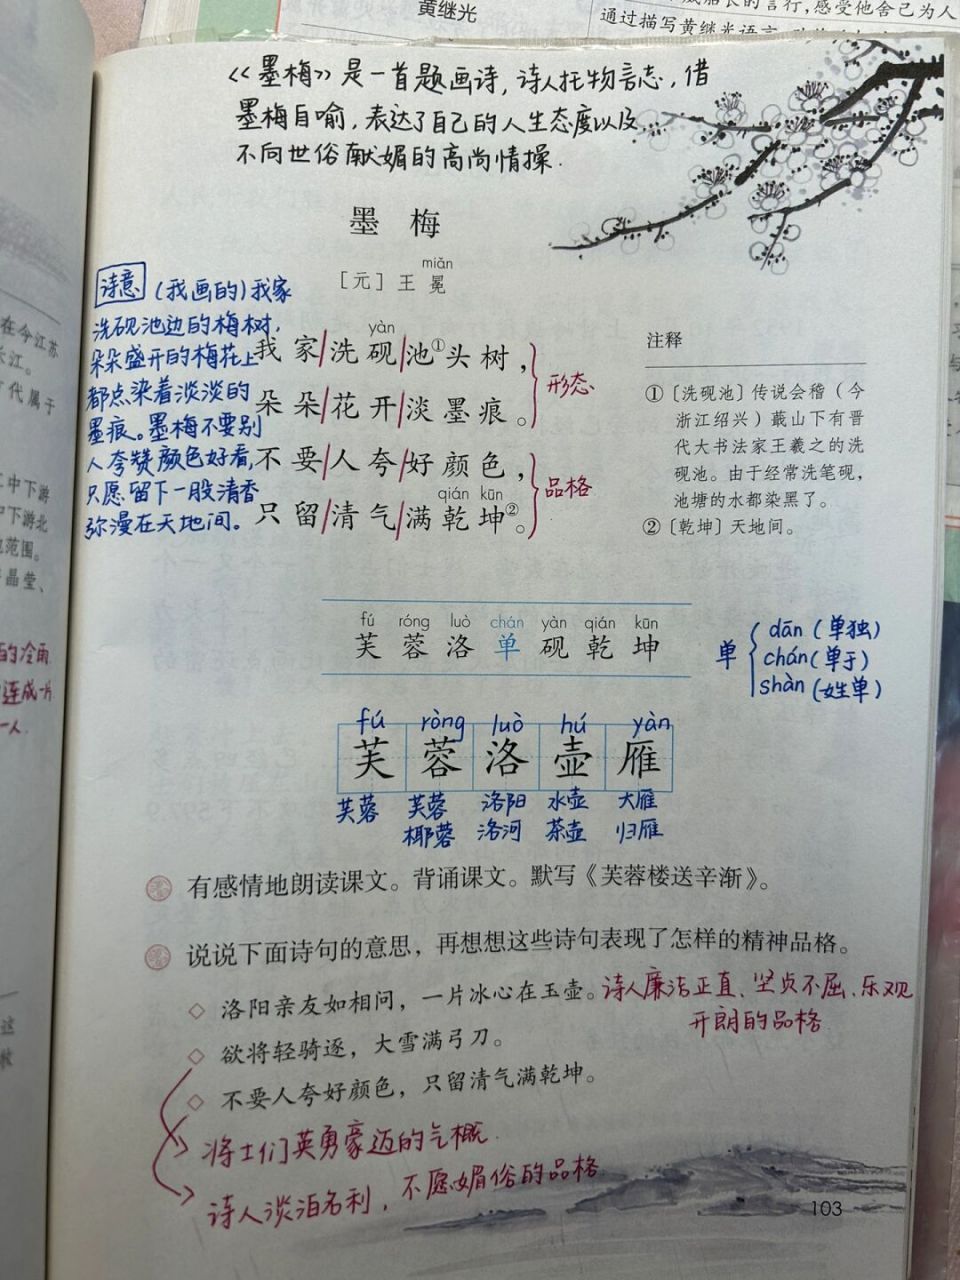 黄继光
通过描写黄继光语言
的言行,感受他舍己为人
《墨梅》是一首题画诗,诗人托物言志,借
墨梅自喻,表达了自己的人生态度以及
不向世俗献媚的高尚情操.
墨 梅
miǎn
［元］王 冕
诗意 (我画的)我家
洗砚池边的梅树,
朵朵盛开的梅花上
都点染着淡淡的
墨痕。墨梅不要别
人夸赞颜色好看,
只愿留下一股清香
弥漫在天地间。
yàn
我家/洗砚/池①头树，
朵朵/花开/淡墨痕。
形态
不要/人夸/好颜色，
qián kūn
只留/清气/满乾坤②。
品格
注释
①〔洗砚池〕传说会稽（今
浙江绍兴）蕺山下有晋
代大书法家王羲之的洗
砚池。由于经常洗笔砚，
池塘的水都染黑了。
②〔乾坤〕天地间。
fú róng luò chán yàn qián kūn
芙 蓉 洛 单 砚 乾 坤
单
dān (单独)
chán (单于)
shàn (姓单)
fú ròng luò hú yàn
芙 蓉 洛 壶 雁
芙蓉 芙蓉 洛阳 水壶 大雁
椰蓉 洛河 茶壶 归雁
有感情地朗读课文。背诵课文。默写《芙蓉楼送辛渐》。
说说下面诗句的意思，再想想这些诗句表现了怎样的精神品格。
◇ 洛阳亲友如相问，一片冰心在玉壶。
诗人廉洁正直、坚贞不屈、乐观
开朗的品格
◇ 欲将轻骑逐，大雪满弓刀。
◇ 不要人夸好颜色，只留清气满乾坤。
将士们英勇豪迈的气概.
诗人淡泊名利，不愿媚俗的品格
103
在今江苏
长江。
代属于
中下游
中下游北
范围。
晶莹、
的冷雨
连成一片
一人.
这